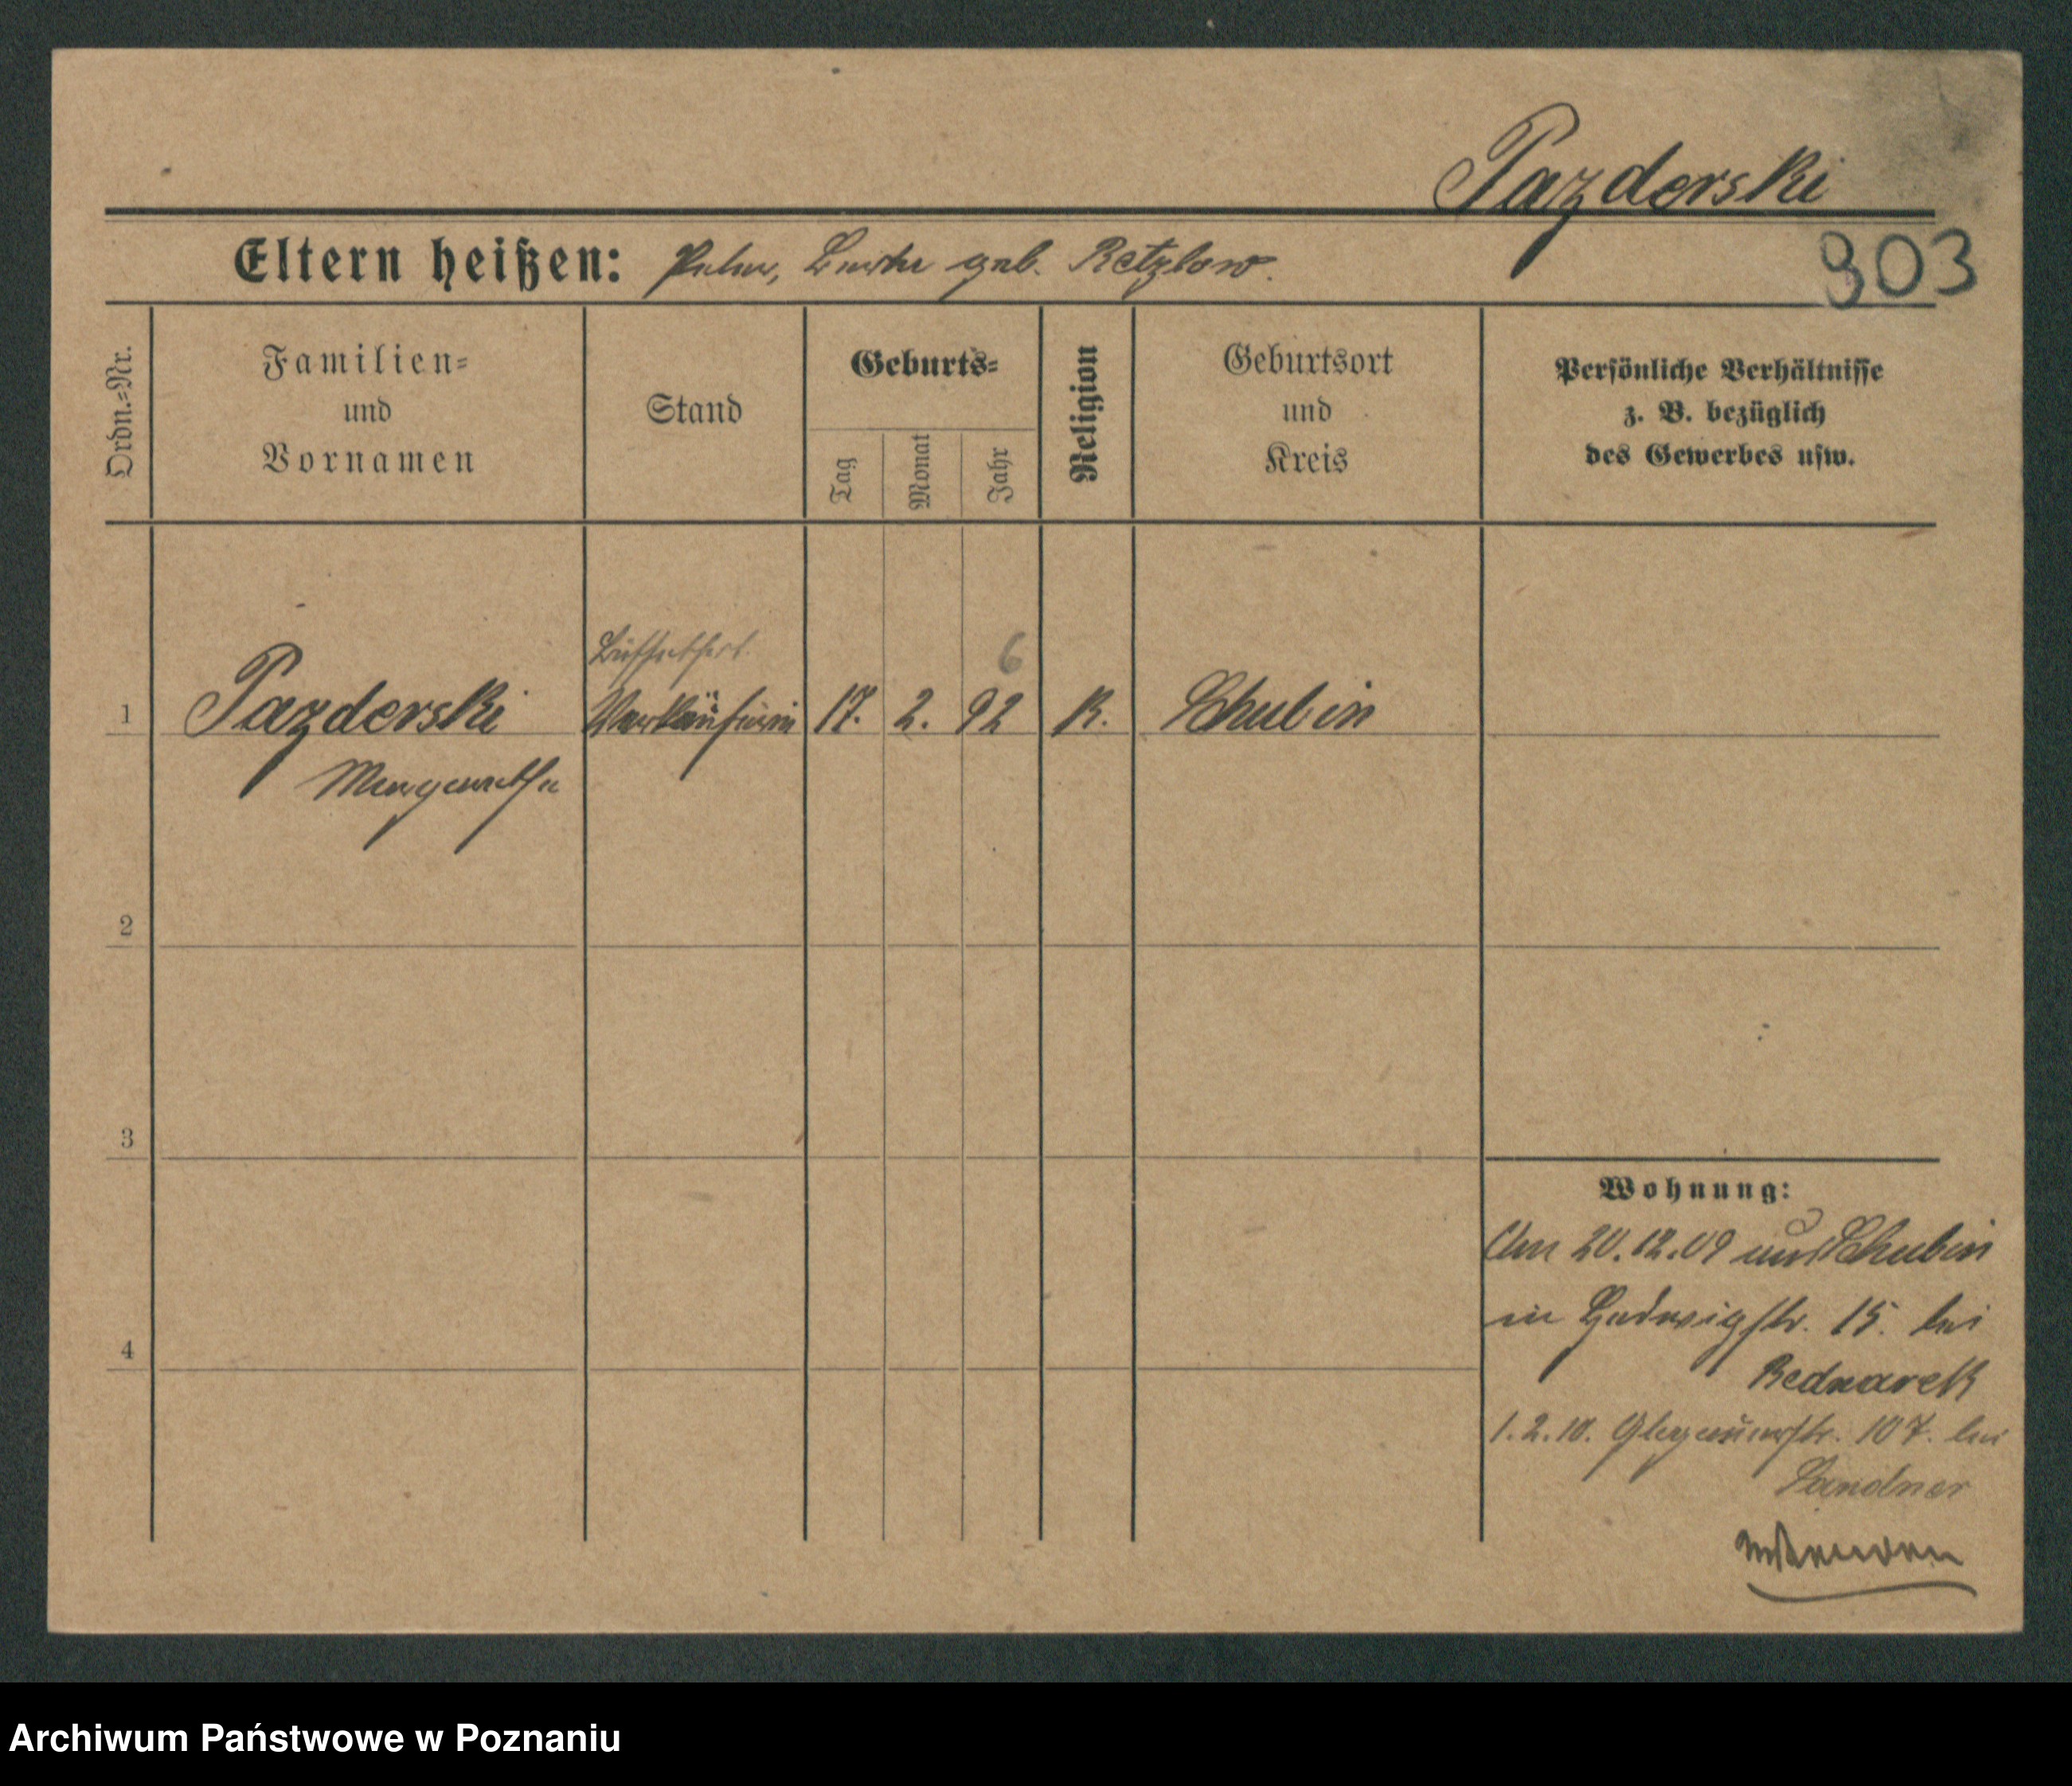 Pazderski
Eltern heißen: geb. Retzlow.
303
Ordn.=Nr.
Familien=
und
Vornamen
Stand
Geburts=
Tag
Monat
Jahr
Religion
Geburtsort
und
Kreis
Persönliche Verhältnisse
z. B. bezüglich
des Gewerbes usw.
6
1 Pazderski Verkäuferin 17. 2. 92 K. Schubin
Margarethe
2
3
4
Wohnung:
Am 20.12.09 aus Schubin
in Hedwigstr. 15. bei
Bednarek
1.2.10. Glogauerstr. 107. bei
Sandner
Archiwum Państwowe w Poznaniu